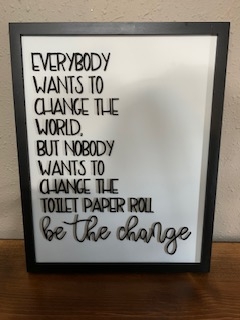 EVERYBODY
WANTS TO
CHANGE THE
WORLD,
BUT NOBODY
WANTS TO
CHANGE THE
TOILET PAPER ROLL
be the change